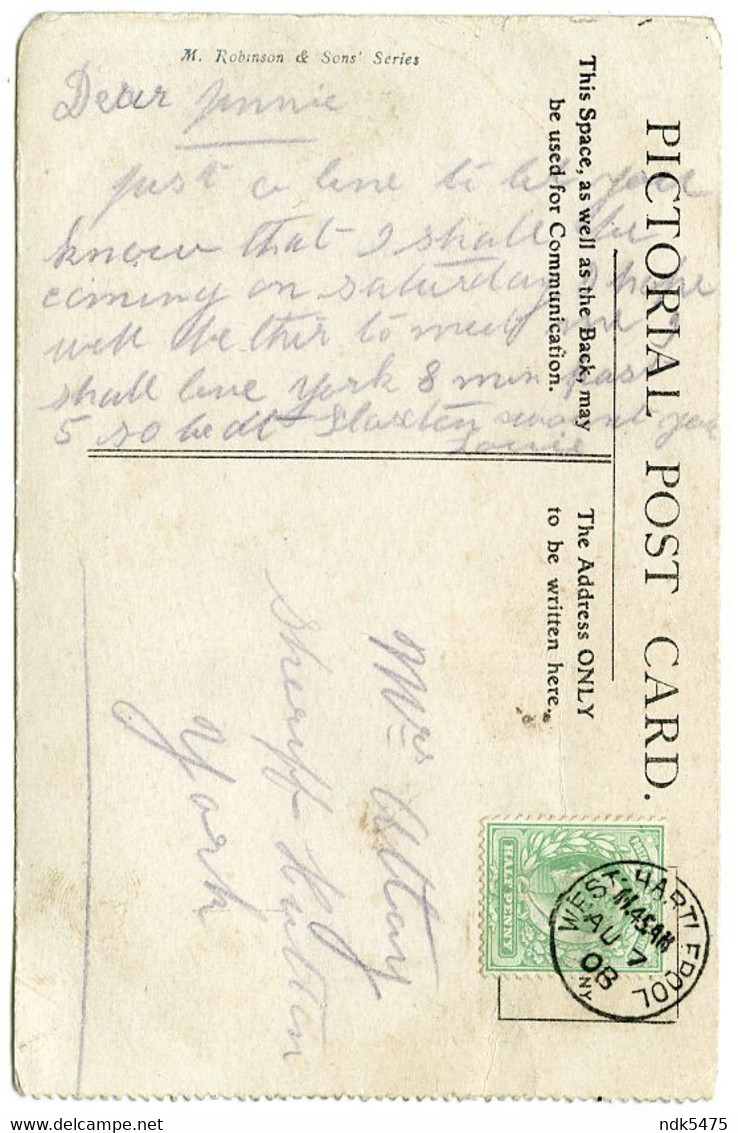 M. Robinson & Sons' Series
Dear Jennie
just a line to let you
know that I shall be
coming on Saturday I hope
will be thir to meet me I
shall leve York 8 min past
5 so be at Flaxton wount you
Louie
PICTORIAL POST CARD.
This Space, as well as the Back, may
be used for Communication.
The Address ONLY
to be written here.
Mrs
Sheriff Hutton
York
HALF PENNY
WEST HARTLEPOOL
11.45AM
AU 7
08